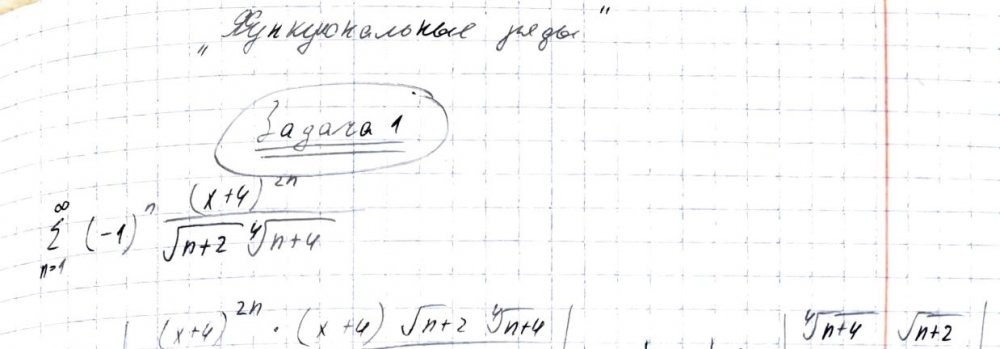 „Функциональные ряды"
Задача 1
∞
∑ (-1)^n (x+4)^{2n} / (√(n+2) ⁴√(n+4))
n=1
| (x+4)^{2n} · (x+4) √(n+2) ⁴√(n+4) | | ⁴√(n+4) √(n+2) |